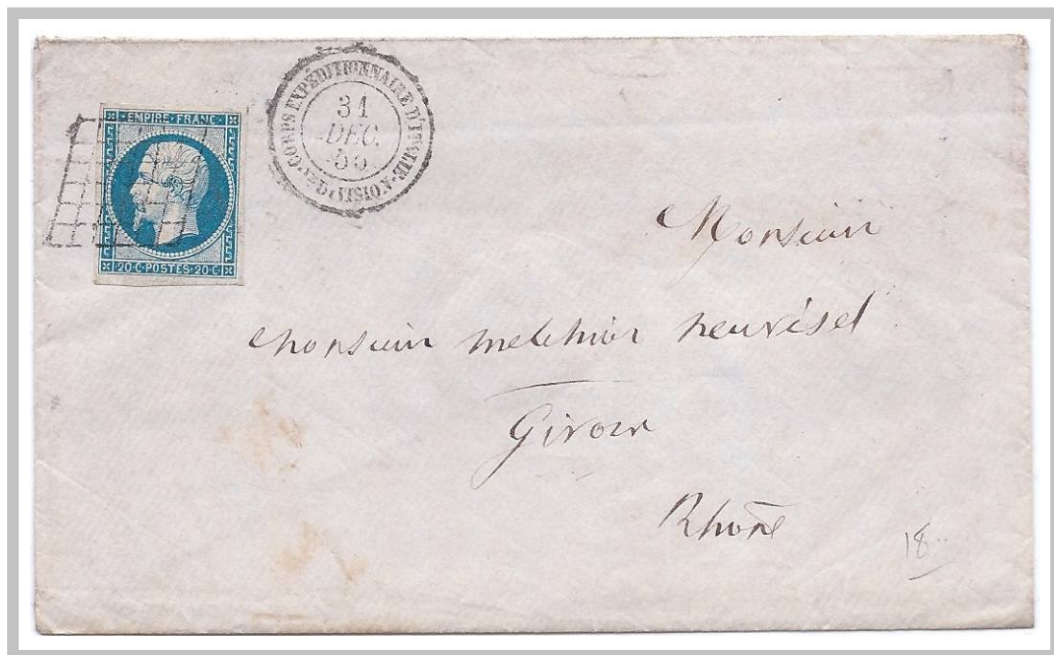 EMPIRE·FRANC·
20·C·POSTES·20·C
CORPS EXPÉDITIONNAIRE D'ITALIE
31
DEC.
Monsieur
Monsieur melchior neuvésel
Givors
Rhône
18